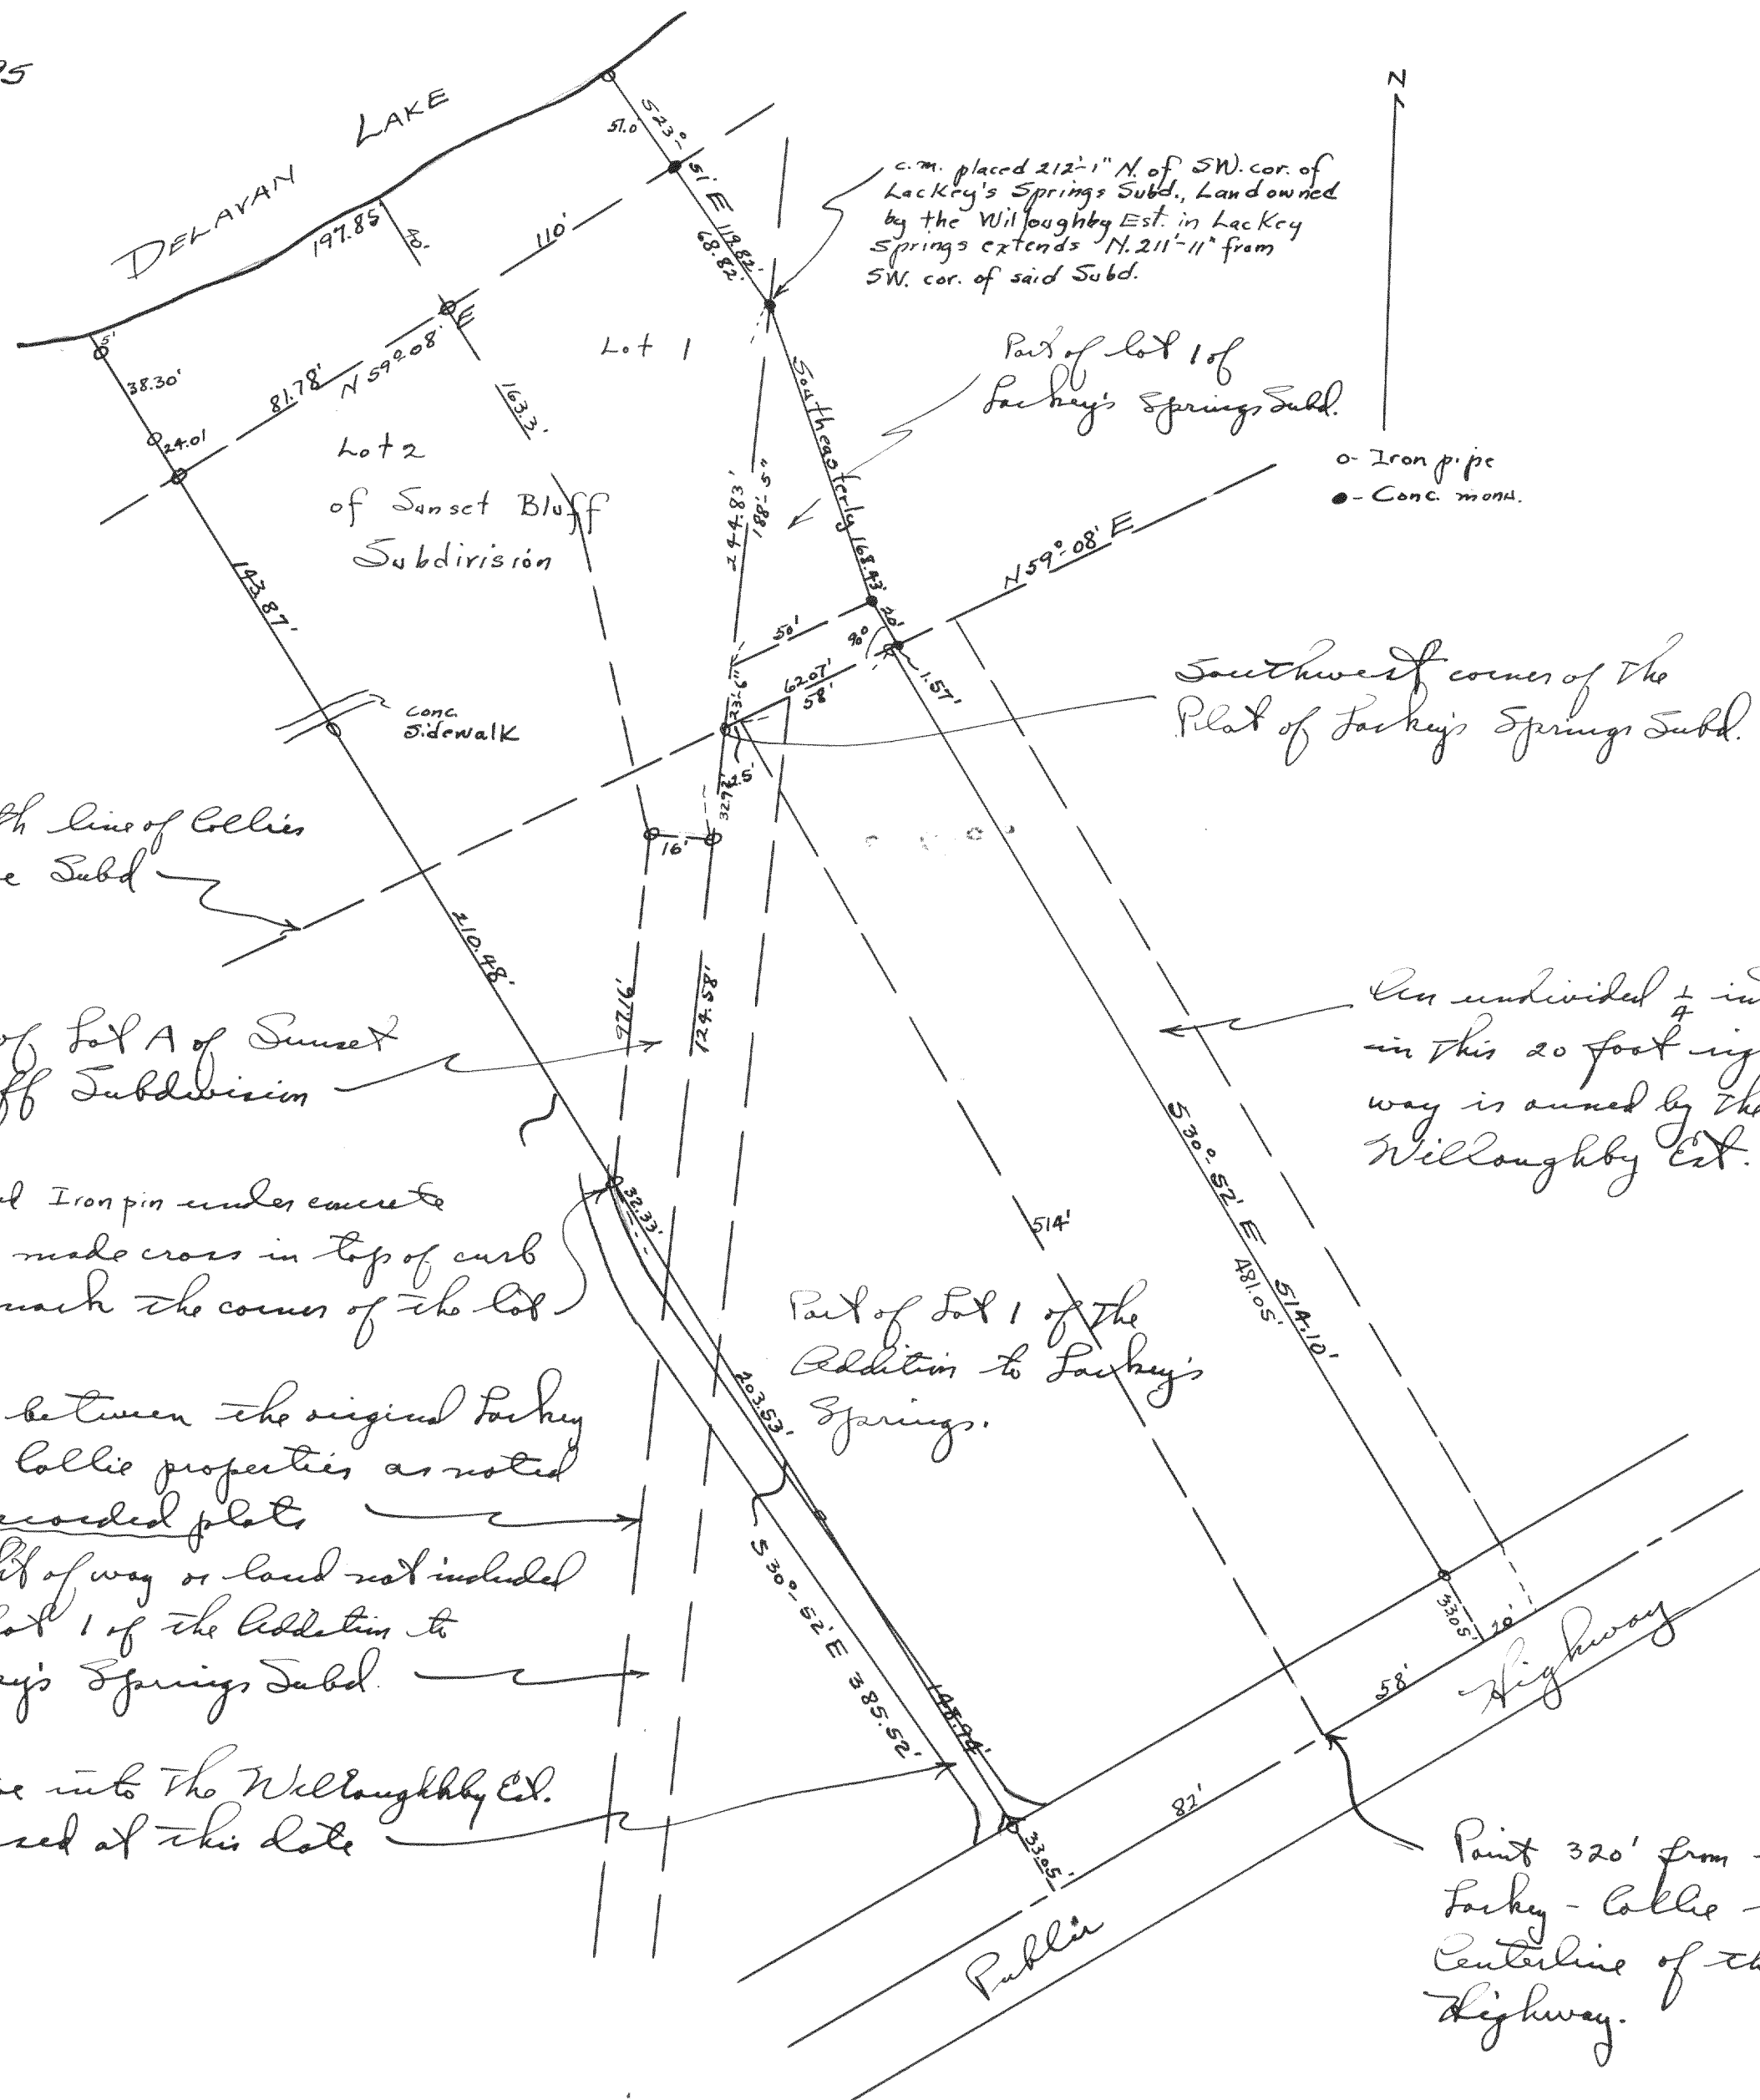 95
DELAVAN LAKE
197.85'
40'
51.0'
S 23°-51' E 119.82'
68.82'
110'
c.m. placed 212'-1" N. of SW. cor. of
Lackey's Springs Subd., Land owned
by the Willoughby Est. in Lackey
Springs extends N. 211'-11" from
SW. cor. of said Subd.
N
5'
38.30'
24.01
81.78'
N 59°08' E
163.3'
Lot 1
Lot 2
of Sunset Bluff
Subdivision
Part of lot 1 of
Lackey's Springs Subd.
o- Iron pipe
●- Conc. monu.
Southeasterly 168.43'
244.83'
188'-5"
N 59°-08' E
143.87'
50'
20'
90°
1.57'
62.07'
58'
23'-6"
conc.
sidewalk
Southwest corner of the
Plat of Lackey's Springs Subd.
25'
32.92'
16'
th line of Collies
e Subd
210.48'
97.16'
124.58'
of Lot A of Sunset
ff Subdivision
An undivided 1/4 in
in this 20 foot rig
way is owned by the
Willoughby Est.
S 30°-52' E 514.10'
481.05'
514'
d Iron pin under concrete
made cross in top of curb
mark the corner of the lot
32.33'
Part of Lot 1 of the
Addition to Lackey's
Springs.
203.53'
between the original Lackey
Collie properties as noted
recorded plats
ht of way or land not included
Lot 1 of the Addition to
ey's Springs Subd.
S 30°-52' E 385.52'
148.94'
33.05'
20'
58'
Highway
ve into The Willoughbby Est.
sed at this date
82'
33.05'
Public
Point 320' from
Lackey - Collie -
Centerline of th
Highway.